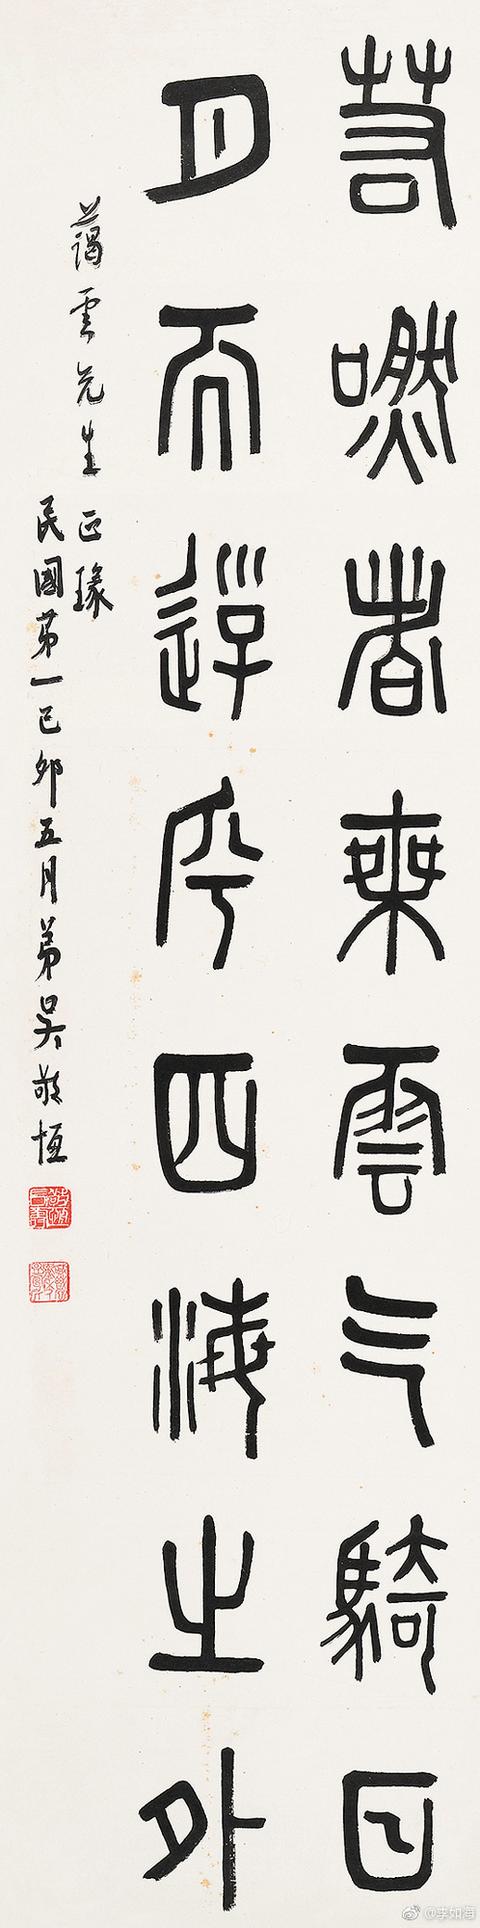 若嘫者乘雲气騎日
月而遊乎四海之外
藹雲先生正瑑
民國第一己卯五月弟吳敬恒
@李如海